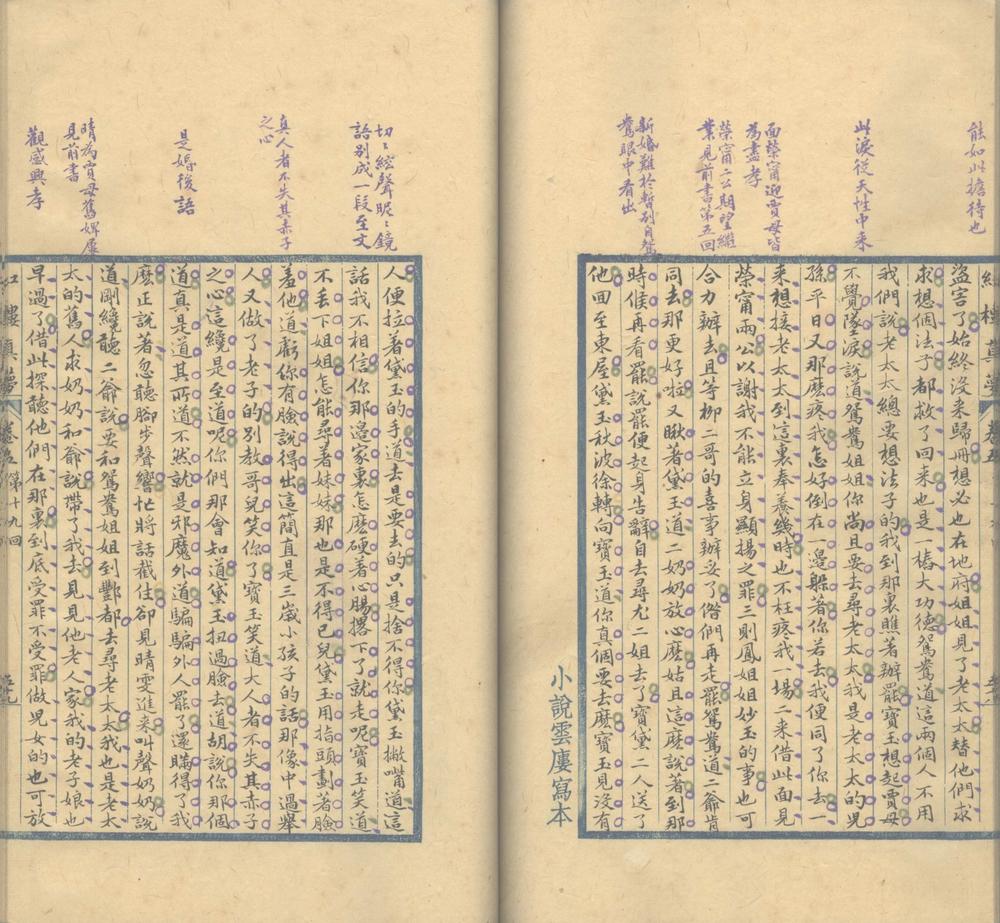 能如此擔待也
此淚從天性中來
面榮甯迎賈母皆
為盡孝
榮甯二公期望繼
業見前書第五回
新婚難於暫別自鴛
鴦眼中看出
盜害了始終沒來歸冊想必也在地府姐姐見了老太太替他們求
求想個法子都救了回來也是一樁大功德鴛鴦道這兩個人不用
我們說老太太總要想法子的我到那裏瞧著辦罷寶玉想起賈母
不覺墜淚說道鴛鴦姐姐你尚且要去尋老太太我是老太太的兒
孫平日又那麼疼我怎好倒在一邊躲著你若去我便同了你去一
來想接老太太到這裏奉養幾時也不枉疼我一場二來借此面見
榮甯兩公以謝我不能立身顯揚之罪三則鳳姐姐妙玉的事也可
合力辦去且等柳二哥的喜事辦妥了偺們再走罷鴛鴦道二爺肯
同去那更好啦又瞅著黛玉道二奶奶放心麼姑且這麼說著到那
時候再看罷說罷便起身告辭自去尋尤二姐去了寶黛二人送了
他回至東屋黛玉秋波徐轉向寶玉道你真個要去麼寶玉見沒有
小說雲廔寫本
切切總聲昵昵鏡
語別成一段至文
真人者不失其赤子
之心
是婚後語
晴為賈母舊婢屢
見前書
觀感興孝
人便拉著黛玉的手道去是要去的只是捨不得你黛玉撇嘴道這
話我不相信你那邊家裏怎麼硬著心腸撂下了就走呢寶玉笑道
不丟下姐姐怎能尋著妹妹那也是不得已兒黛玉用指頭劃着臉
羞他道虧你有臉說得出這簡直是三歲小孩子的話那像中過舉
人又做了老子的別教哥兒笑你了寶玉笑道大人者不失其赤子
之心這纔是至道呢你們那會知道黛玉扭過臉去道胡說你那個
道真是道其所道不然就是邪魔外道騙騙外人罷了還瞞得了我
麼正說著忽聽腳步聲響忙將話截住卻見晴雯進來叫聲奶奶說
道剛纔聽二爺說要和鴛鴦姐姐到酆都去尋老太太我也是老太
太的舊人求奶奶和爺說帶了我去見見他老人家我的老子娘也
早過了借此探聽他們在那裏到底受罪不受罪做兒女的也可放
紅樓真夢 卷五 第十九回